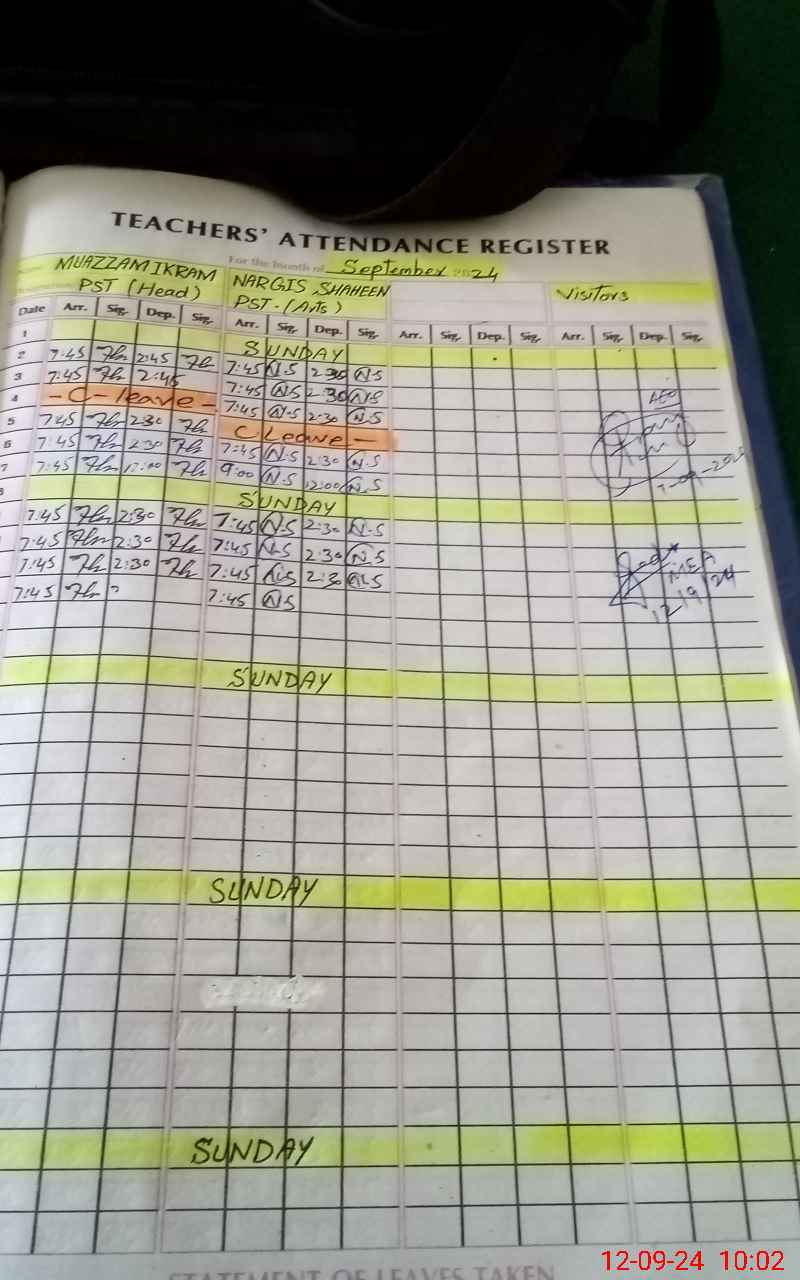 TEACHERS' ATTENDANCE REGISTER
For the month of September 2024
MUAZZAM IKRAM NARGIS SHAHEEN Visitors
PST (Head) PST. (Arts)
Date Arr. Sig. Dep. Sig. Arr. Sig. Dep. Sig. Arr. Sig. Dep. Sig. Arr. Sig. Dep. Sig.
1 SUNDAY
2 7:45 2:45 7:45 N.S 2:30 N.S
3 7:45 2:45 7:45 N.S 2:30 N.S
4 - C - leave - 7:45 N.S 2:30 N.S
5 7:45 2:30 C Leave -
6 7:45 2:30 7:45 N.S 2:30 N.S
7 7:45 12:00 9:00 N.S 12:00 N.S
SUNDAY
7:45 2:30 7:45 N.S 2:30 N.S
7:45 2:30 7:45 N.S 2:30 N.S
7:45 2:30 7:45 N.S 2:30 N.S
7:45 7:45 N.S
AEO
MEA
12/9/24
SUNDAY
SUNDAY
SUNDAY
STATEMENT OF LEAVES TAKEN
12-09-24 10:02